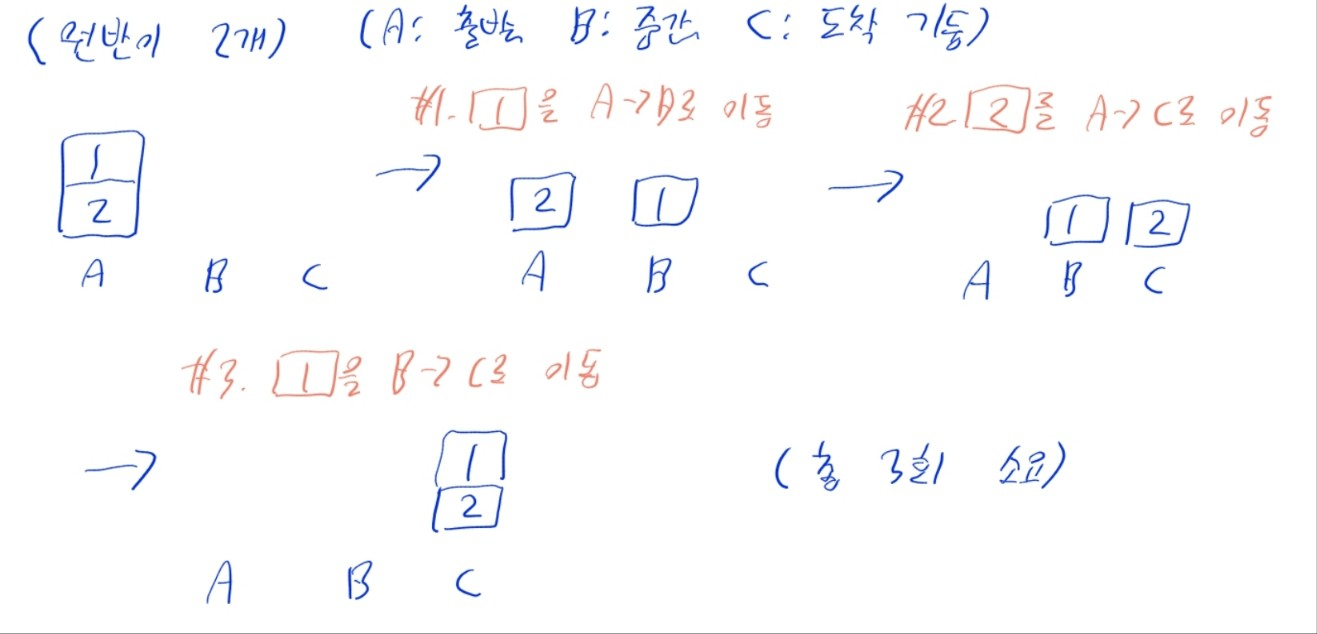 (원반이 2개) (A: 출발 B: 중간 C: 도착 기둥)
#1. 1을 A->B로 이동 #2 2를 A->C로 이동
1
2
A B C
→
2 1
A B C
→
1 2
A B C
#3. 1을 B->C로 이동
→
1
2
A B C
(총 3회 소요)